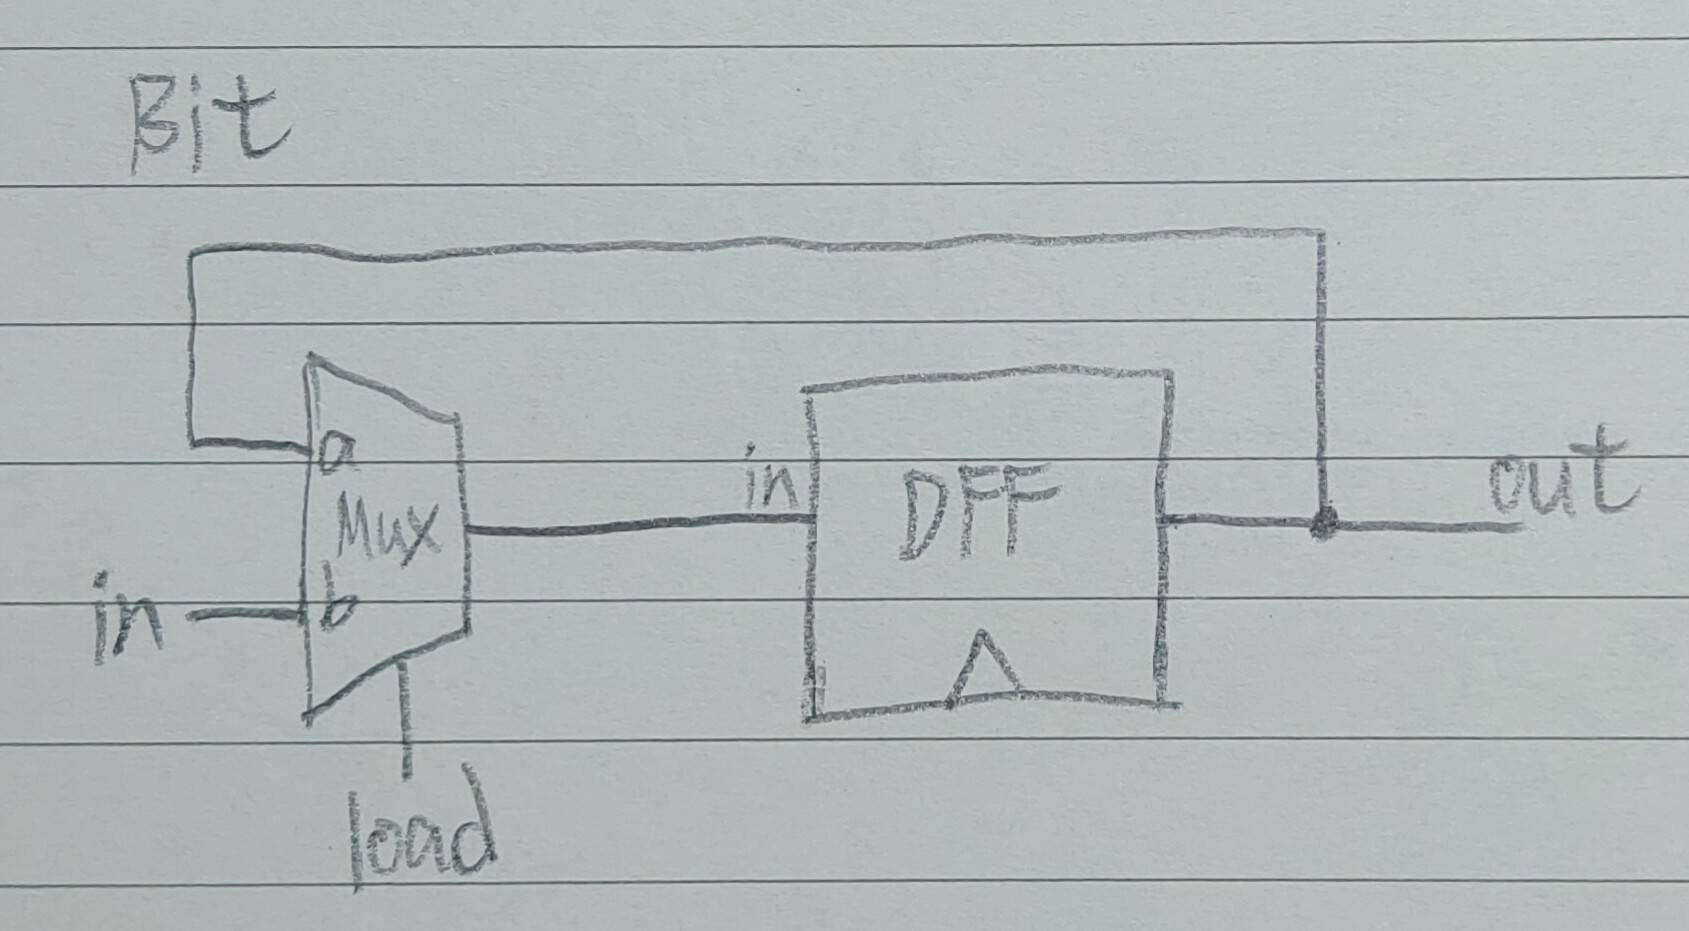 Bit
a
Mux
b
in
load
in
DFF
out